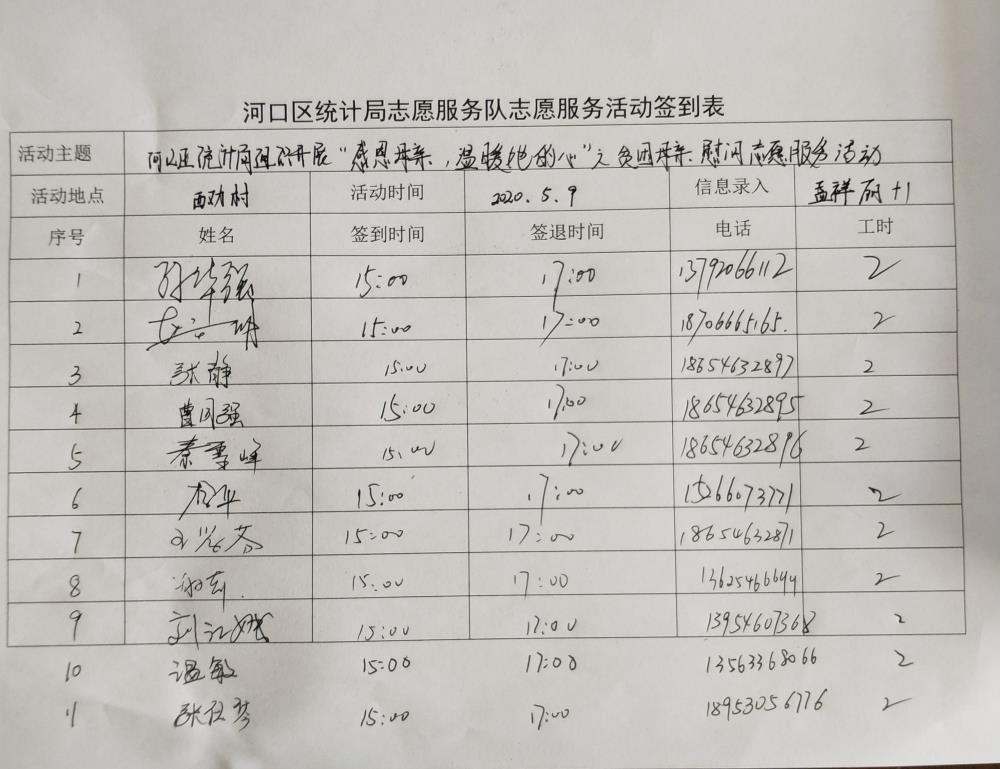 河口区统计局志愿服务队志愿服务活动签到表
活动主题 河口区统计局组织开展“感恩母亲,温暖她的心”之贫困母亲慰问志愿服务活动
活动地点 西劝村 活动时间 2020.5.9 信息录入 孟祥丽+1
序号 姓名 签到时间 签退时间 电话 工时
1 孙华强 15:00 17:00 13792066112 2
2 15:00 17:00 18706665165. 2
3 张静 15:00 17:00 18654632897 2
4 曹同强 15:00 17:00 18654632895 2
5 秦季峰 15:00 17:00 18654632896 2
6 15:00 17:00 15266073771 2
7 王兴芬 15:00 17:00 18654632871 2
8 15:00 17:00 13625466699 2
9 刘江娥 15:00 17:00 13954607368 2
10 温敏 15:00 17:00 13563368066 2
11 15:00 17:00 18953056776 2